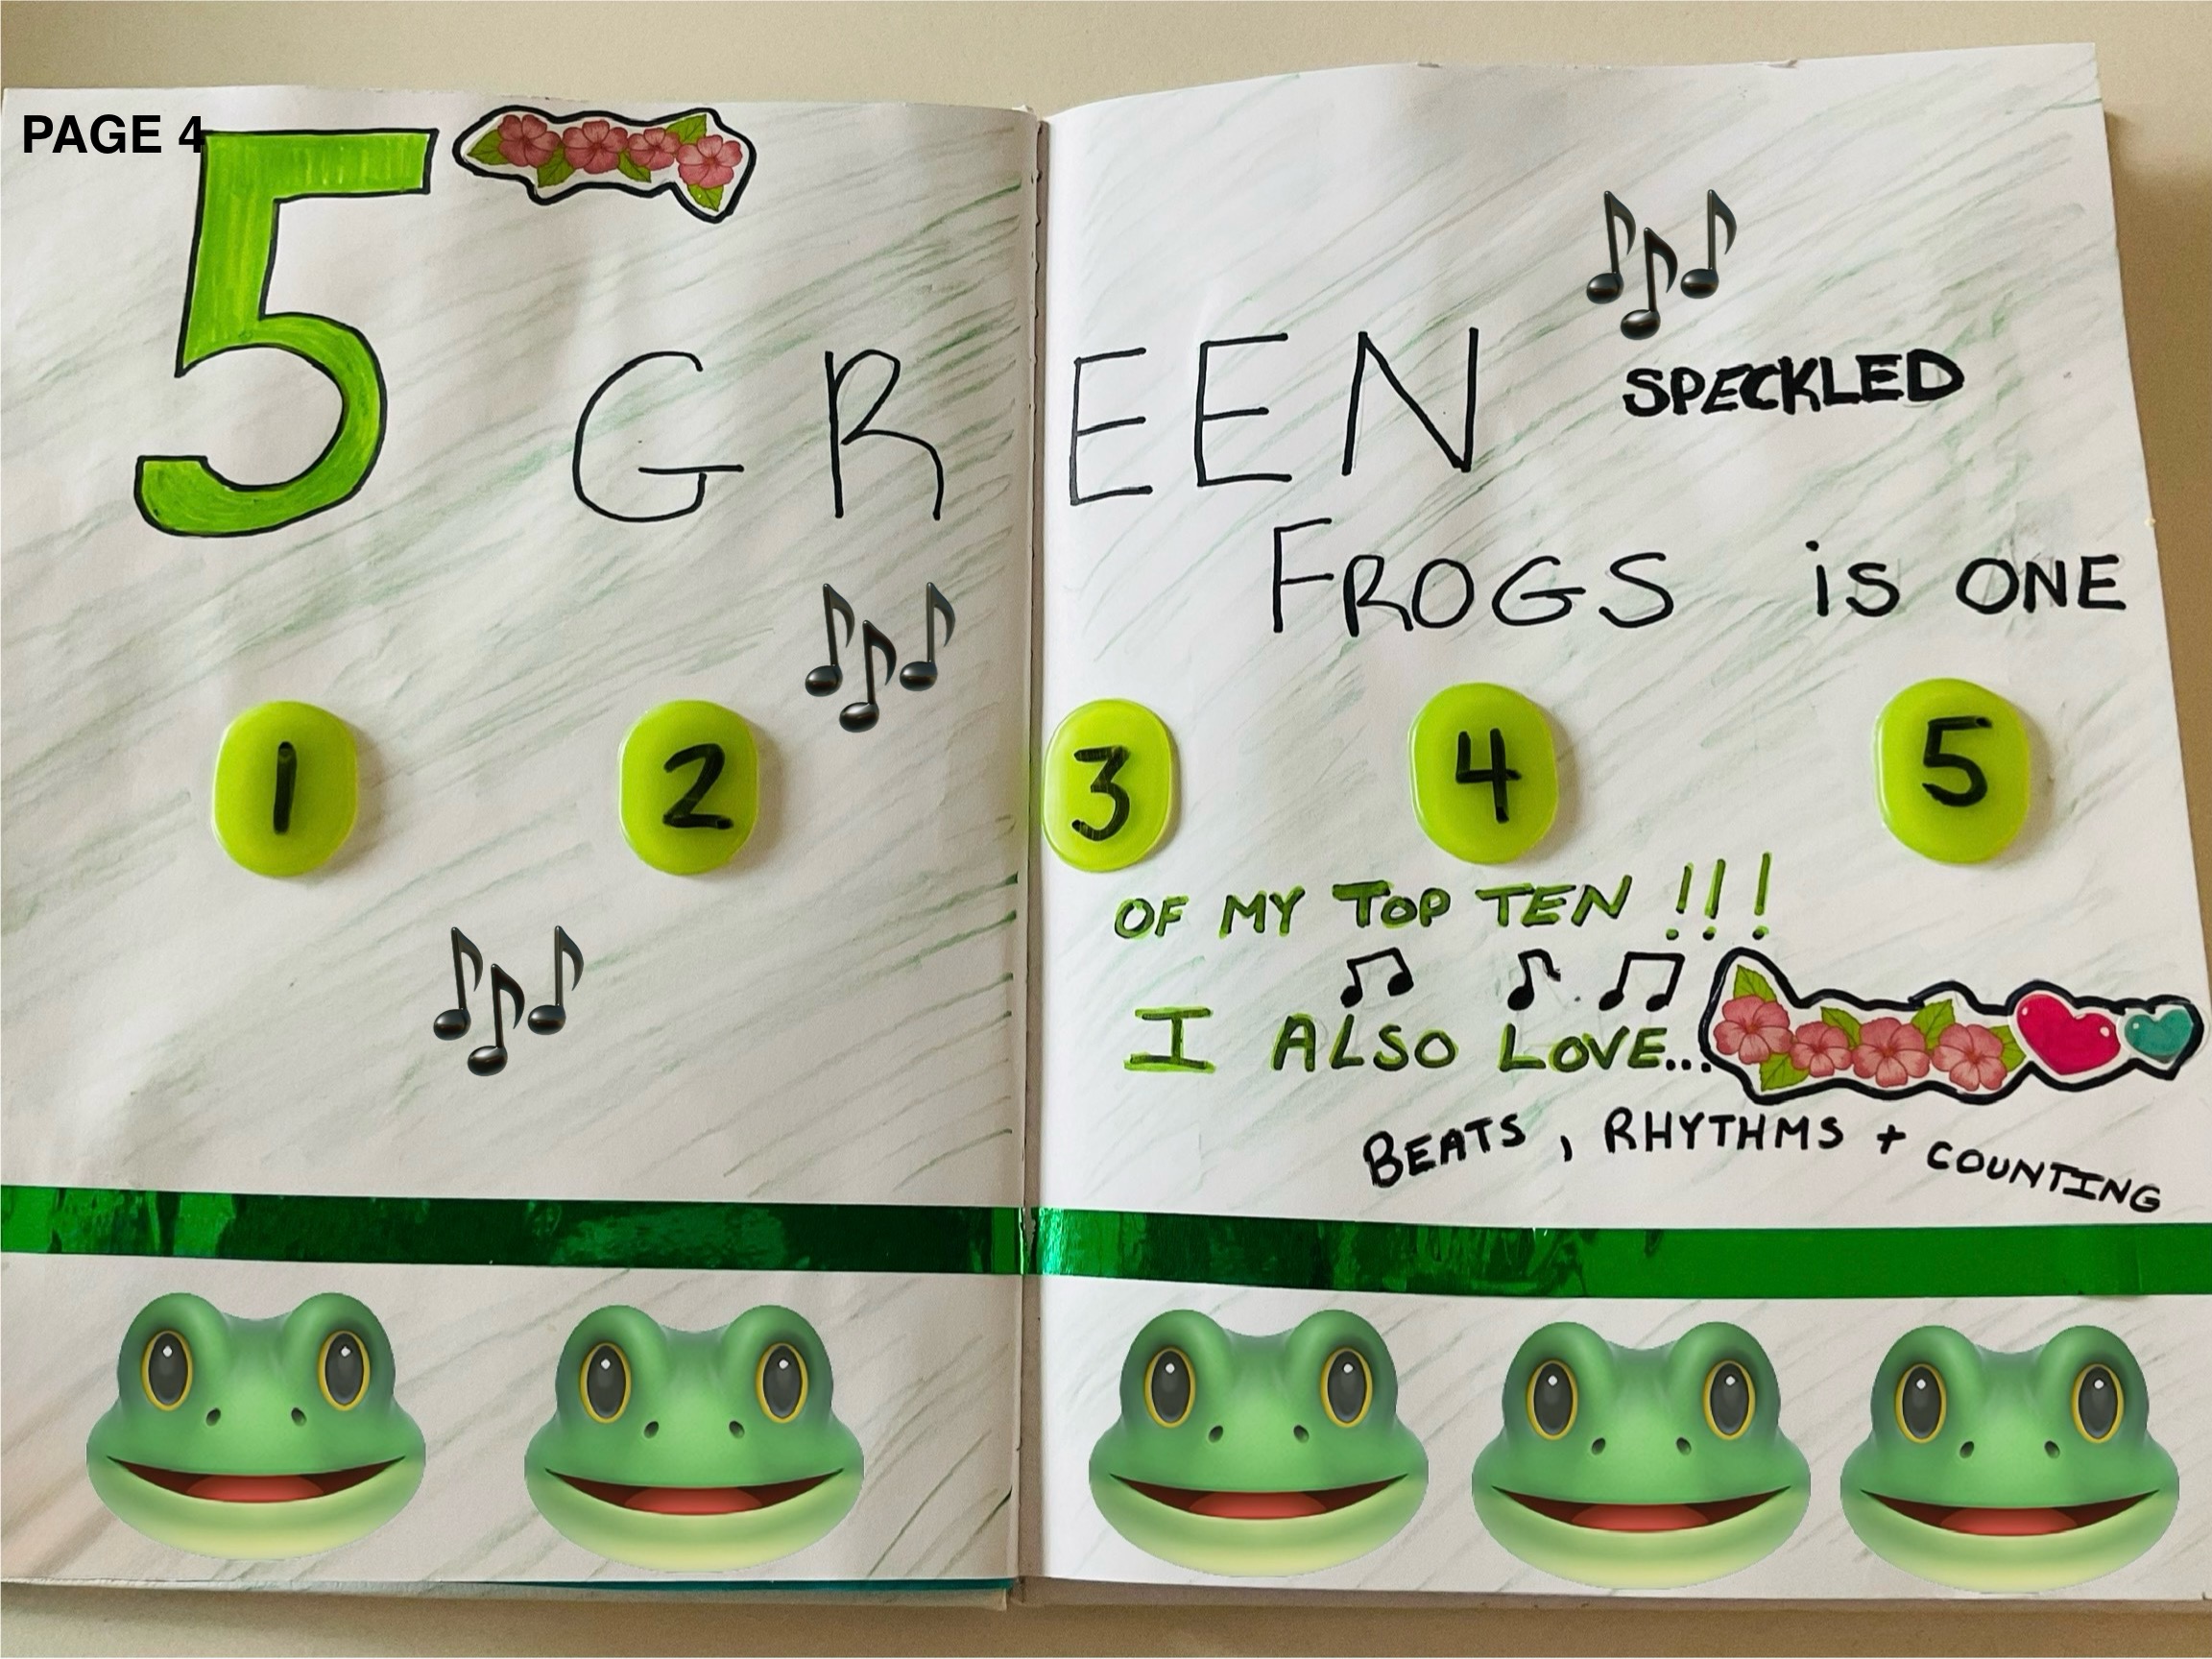 PAGE 4
5 GREEN SPECKLED
FROGS is ONE
1 2 3 4 5
OF MY TOP TEN !!!
I ALSO LOVE...
BEATS, RHYTHMS + COUNTING